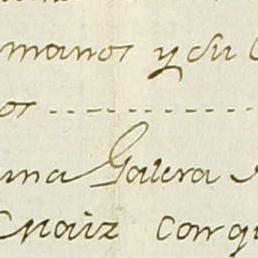 manos y su
os
una Galera
Maiz Carg